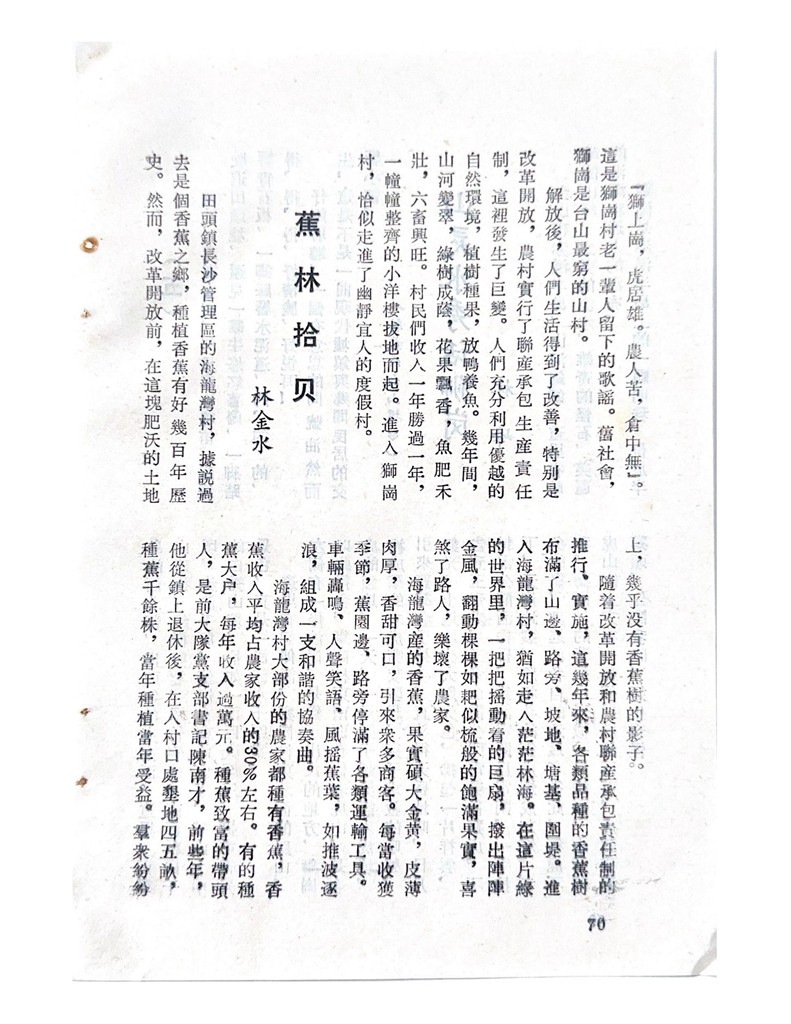 「獅上崗，虎居雄。農人苦，倉中無」。
這是獅崗村老一輩人留下的歌謡。舊社會，
獅崗是台山最窮的山村。
解放後，人們生活得到了改善，特別是
改革開放，農村實行了聯産承包生産責任
制，這裡發生了巨變。人們充分利用優越的
自然環境，植樹種果，放鴨養魚。幾年間，
山河變翠，綠樹成蔭，花果飄香，魚肥禾
壯，六畜興旺。村民們收入一年勝過一年，
一幢幢整齊的小洋樓拔地而起。進入獅崗
村，恰似走進了幽靜宜人的度假村。
蕉林拾贝
林金水
田頭鎮長沙管理區的海龍灣村，據説過
去是個香蕉之鄉，種植香蕉有好幾百年歷
史。然而，改革開放前，在這塊肥沃的土地
上，幾乎没有香蕉樹的影子。
隨着改革開放和農村聯產承包責任制的
推行、實施，這幾年來，各類品種的香蕉樹
布滿了山邊、路旁、坡地、塘基、圍堤。進
入海龍灣村，猶如走入茫茫林海。在這片綠
的世界里，一把把摇動着的巨扇，撥出陣陣
金風，翻動棵棵如耙似梳般的飽滿果實，喜
煞了路人，樂壞了農家。
海龍灣産的香蕉，果實碩大金黄，皮薄
肉厚，香甜可口，引來衆多商客。每當收獲
季節，蕉園邊、路旁停滿了各類運輸工具。
車輛轟鳴、人聲笑語、風摇蕉葉，如推波逐
浪，組成一支和諧的協奏曲。
海龍灣村大部份的農家都種有香蕉，香
蕉收入平均占農家收入的30%左右。有的種
蕉大户，每年收入過萬元。種蕉致富的帶頭
人，是前大隊黨支部書記陳南才，前些年，
他從鎮上退休後，在入村口處墾地四五畝，
種蕉千餘株，當年種植當年受益。羣衆紛紛
70